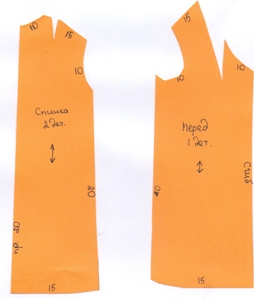 10
15
10
Спинка
2 дет.
20
15
10
10
Перед
1 дет.
сгиб
15